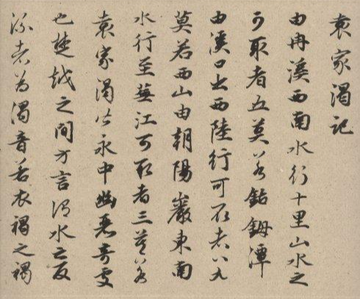 袁家渴記
由冉溪西南水行十里山水之
可取者五莫若鈷鉧潭
由溪口西陸行可取者八九
莫若西山由朝陽巖東南
水行至蕪江可取者三莫若
袁家渴皆永中幽麗奇處
也楚越之間方言謂水之反
流者為渴音若衣褐之褐